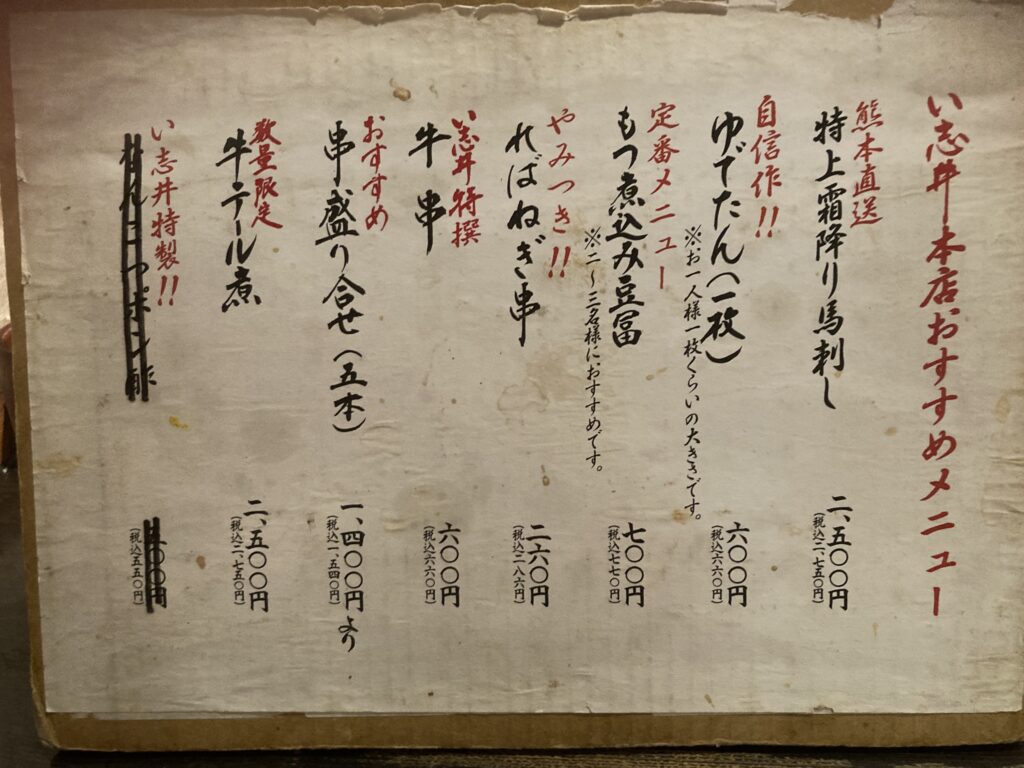 い志井本店おすすめメニュー
熊本直送
特上霜降り馬刺し
二、五〇〇円
(税込二、七五〇円)
自信作!!
ゆでたん(一枚)
※お一人様一枚くらいの大きさです。
六〇〇円
(税込六六〇円)
定番メニュー
もつ煮込み豆冨
※二〜三名様におすすめです。
七〇〇円
(税込七七〇円)
やみつき!!
ればねぎ串
二六〇円
(税込二八六円)
い志井特撰
牛串
六〇〇円
(税込六六〇円)
おすすめ
串盛り合せ(五本)
一、四〇〇円より
(税込一、五四〇円)
数量限定
牛テール煮
二、五〇〇円
(税込二、七五〇円)
い志井特製!!
ポン酢
五〇〇円
(税込五五〇円)